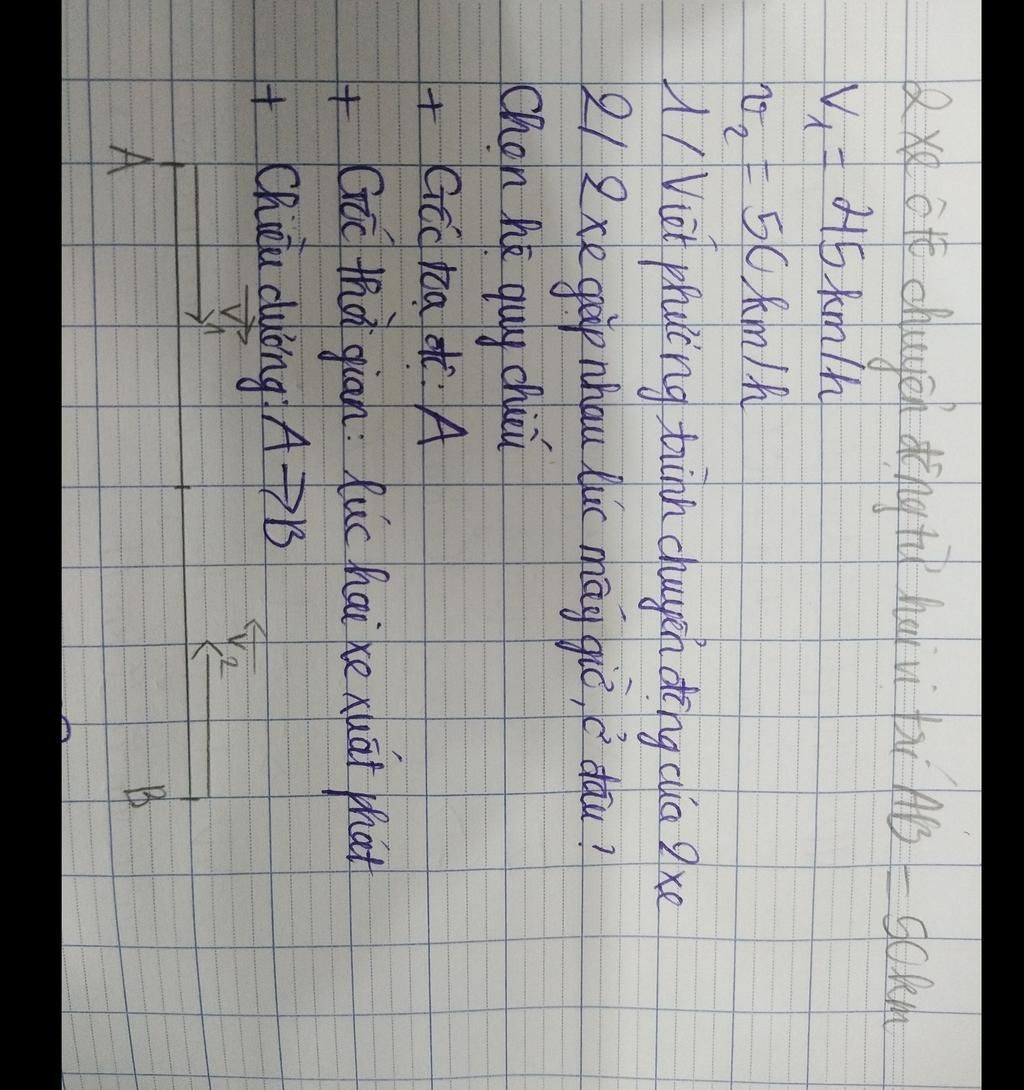 2 xe ô tô chuyển động từ hai vị trí AB = 50km
V₁ = 45km/h
v₂ = 50km/h
1/ Viết phương trình chuyển động của 2 xe
2/ 2 xe gặp nhau lúc mấy giờ, ở đâu?
Chọn hệ quy chiếu
+ Gốc tọa độ: A
+ Gốc thời gian: lúc hai xe xuất phát
+ Chiều dương: A → B
V₁ V₂
A B